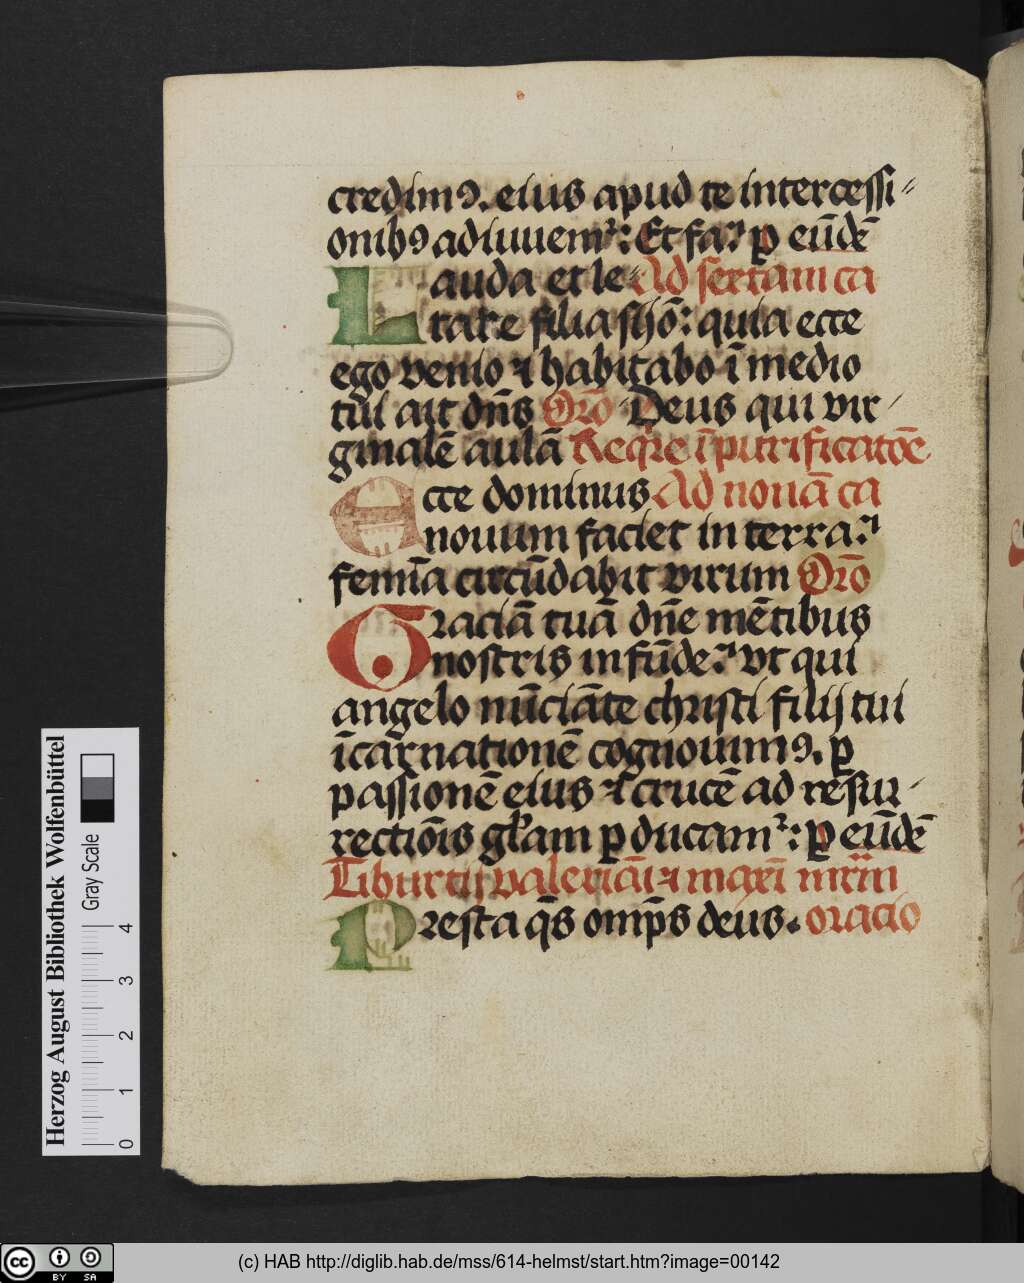 credimꝰ. eius apud te intercessi⸗
onibꝰ adiuuemᷣ: Et fa. ꝑ eūdē
Lauda et le⸗ Ad sextam ca
tare filia syō: quia ecce
ego venio ⁊ habitabo ī medio
tui ait dn̄s Orō Deus qui vir⸗
ginalē aulā Reqͥre ī purificatōe
Ecce dominus Ad nonā ca
nouum faciet in terra:
femīa circūdabit virum Orō
Graciā tuā dn̄e mētibus
nostris infūde: vt qui
angelo nūciāte christi filij tui
īcarnationē cognouimꝰ. ꝑ
passionē eius ⁊ crucē ad resur⸗
rectiōis gl̄am ꝑducamᷣ: ꝑ eūdē
Tiburcij valeriāi ⁊ maxī mr̄m
Presta qs̄ omp̄s deus. oracio
Herzog August Bibliothek Wolfenbüttel
Gray Scale
0 1 2 3 4
cc BY SA
(c) HAB http://diglib.hab.de/mss/614-helmst/start.htm?image=00142